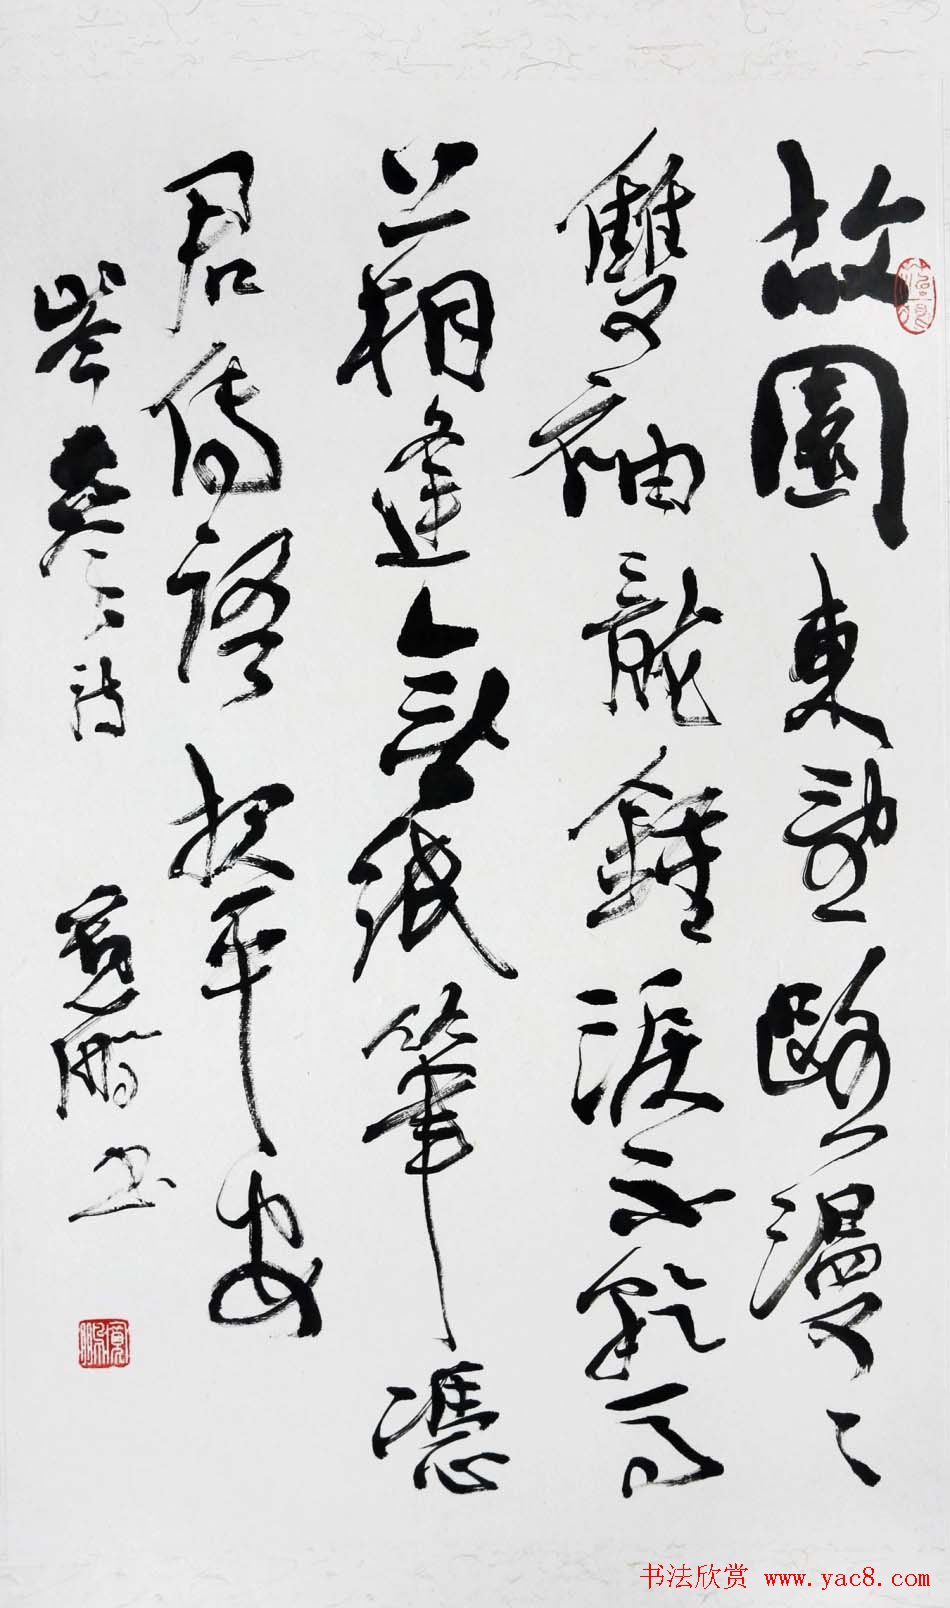 故園東望路漫〻
雙袖龍鍾淚不乾馬
上相逢無紙筆憑
君傳語報平安
岑參詩 寬鵬書
寬鵬
书法欣赏 www.yac8.com